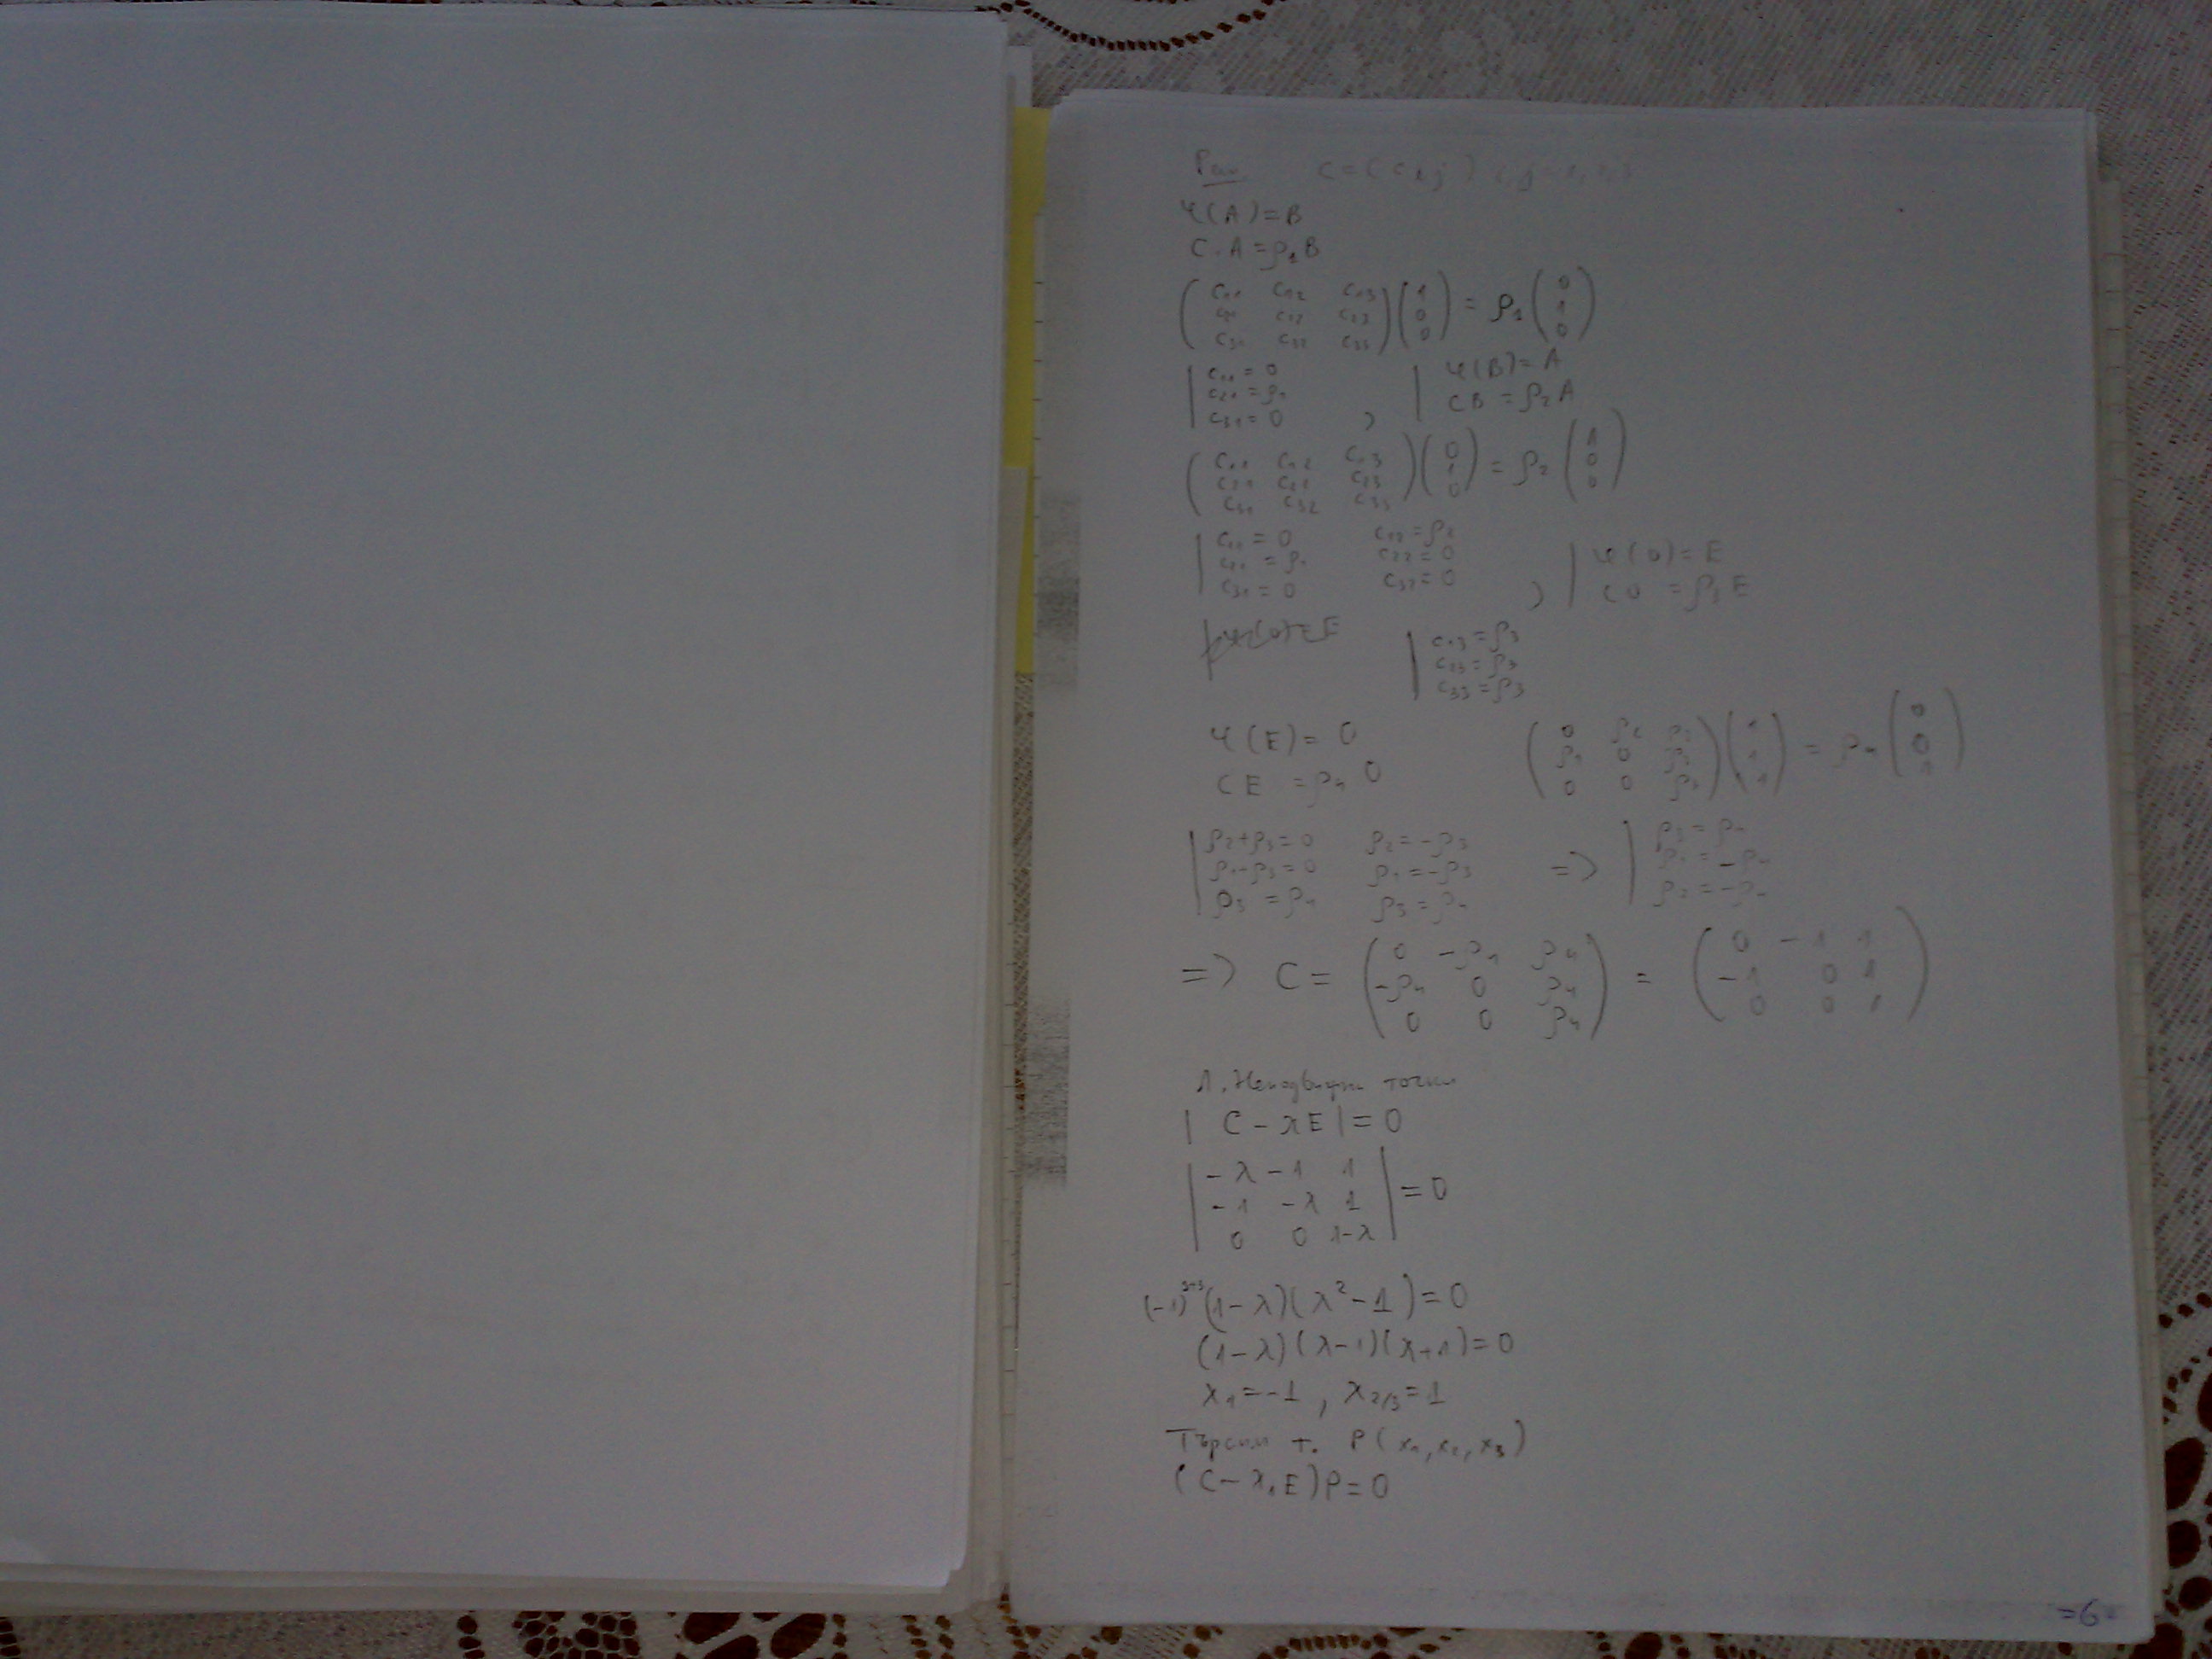 C = ( c i j ) i, j = 1, 2, 3
Ψ(A) = B
C . A = ρ₁ B
( c₁₁ c₁₂ c₁₃ ; c₂₁ c₂₂ c₂₃ ; c₃₁ c₃₂ c₃₃ ) ( 1 ; 0 ; 0 ) = ρ₁ ( 0 ; 1 ; 0 )
| c₁₁ = 0 ; c₂₁ = ρ₁ ; c₃₁ = 0 , | Ψ(B) = A ; CB = ρ₂ A
( c₁₁ c₁₂ c₁₃ ; c₂₁ c₂₂ c₂₃ ; c₃₁ c₃₂ c₃₃ ) ( 0 ; 1 ; 0 ) = ρ₂ ( 1 ; 0 ; 0 )
| c₁₁ = 0 c₁₂ = ρ₂ ; c₂₁ = ρ₁ c₂₂ = 0 ; c₃₁ = 0 c₃₂ = 0 , | Ψ(0) = E ; C0 = ρ₃ E
| c₁₃ = ρ₃ ; c₂₃ = ρ₃ ; c₃₃ = ρ₃
Ψ(E) = 0
CE = ρ₄ 0
( 0 ρ₂ ρ₃ ; ρ₁ 0 ρ₃ ; 0 0 ρ₃ ) ( 1 ; 1 ; 1 ) = ρ₄ ( 0 ; 0 ; 1 )
| ρ₂+ρ₃ = 0 ρ₂ = -ρ₃ => | ρ₃ = ρ₄
| ρ₁-ρ₃ = 0 ρ₁ = -ρ₃ | ρ₁ = -ρ₄
| ρ₃ = ρ₄ ρ₃ = ρ₄ | ρ₂ = -ρ₄
=> C = ( 0 -ρ₄ ρ₄ ; -ρ₄ 0 ρ₄ ; 0 0 ρ₄ ) = ( 0 -1 1 ; -1 0 1 ; 0 0 1 )
1. Неподвижни точки
| C - λE | = 0
| -λ -1 1 ; -1 -λ 1 ; 0 0 1-λ | = 0
(-1)³⁺³ (1-λ)(λ²-1) = 0
(1-λ)(λ-1)(λ+1) = 0
λ₁ = -1 , λ₂/₃ = 1
Търсим т. P(x₁, x₂, x₃)
(C - λ₁E)P = 0
=6=